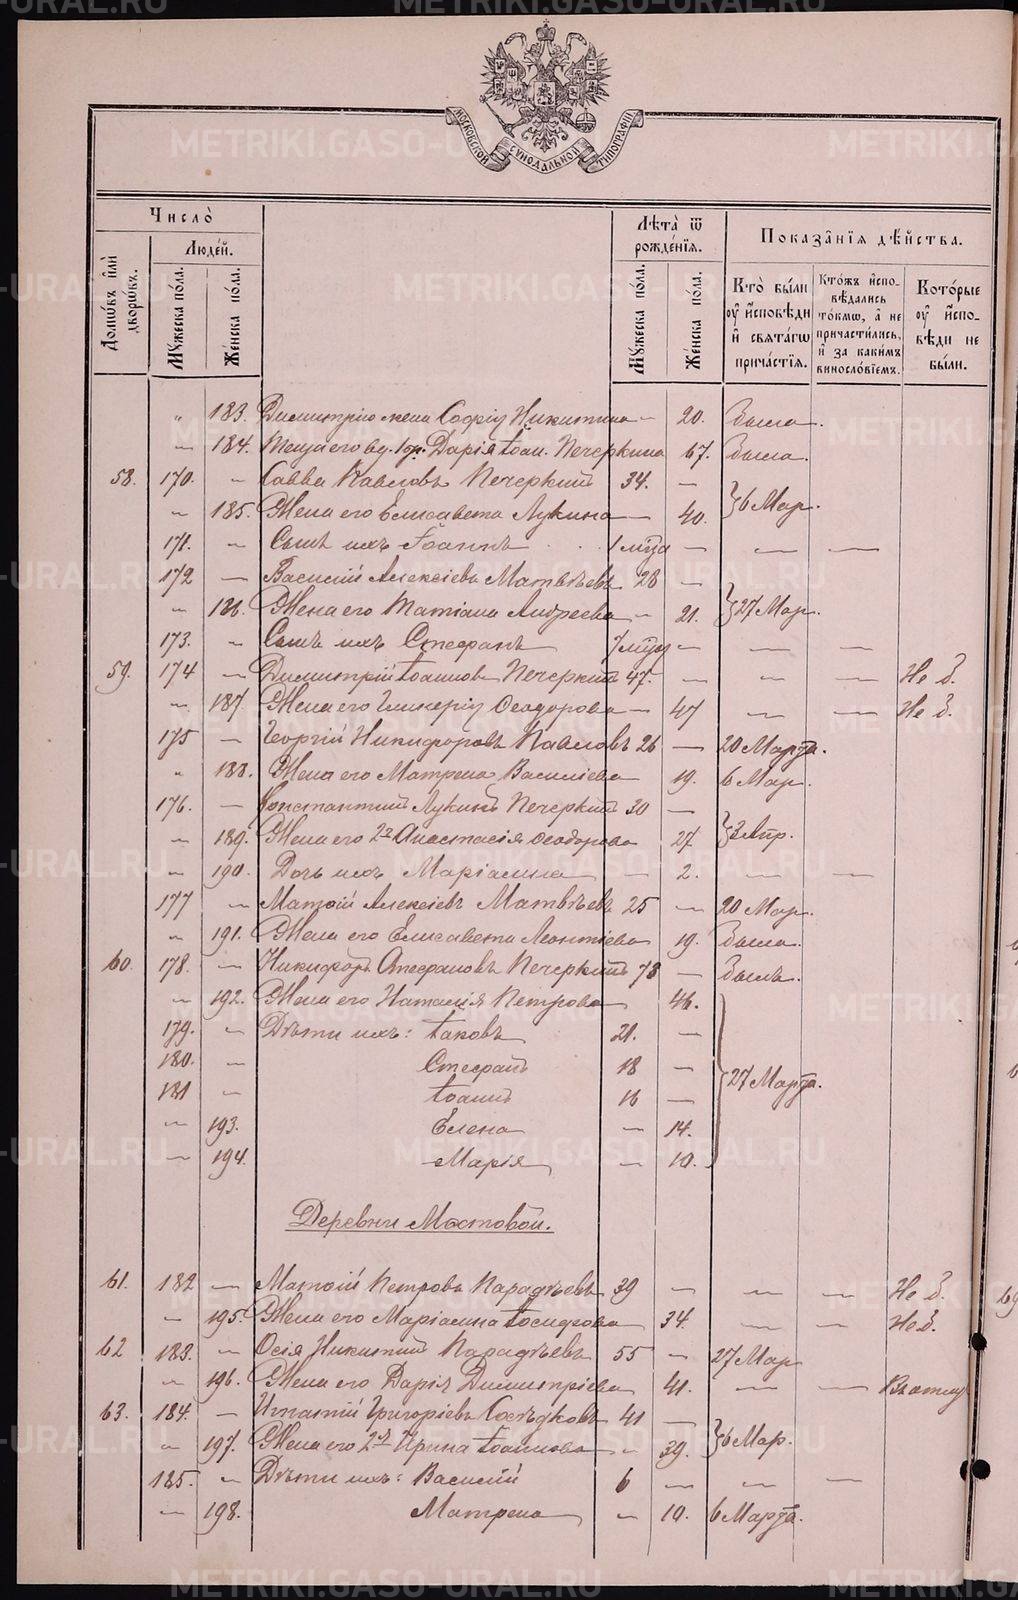 МОСКОВСКОЙ СѴНОДАЛЬНОЙ ТИПОГРАФІИ
Число̀
Домѡвъ и҆лѝ дворѡвъ.
Людей.
Мꙋжеска по́ла.
Же́нска по́ла.
Лѣта̀ ѿ рожде́нїѧ.
Мꙋжеска по́ла.
Же́нска по́ла.
Показа̑нїѧ дѣ́йства.
Кто̀ бы́ли ᲂу҆ и҆сповѣди и҆ свѧта́гѡ прича́стїѧ.
Кто́жъ и҆спо-вѣдались то́кмѡ, а҆ не причасти́лись, и҆ за каки́мъ винословїемъ.
Кото́рые ᲂу҆ и҆спо-вѣди не бы́ли.
" 183. Димитрію жена Софія Никитина — 20. Была.
— 184. Теща его вд. Дарія Іоан. Печеркина 67. Была.
58. 170. — Савва Павловъ Печеркинъ 34. —
— 185. Жена его Елисавета Лукина — 40. } 6 Мар.
171. — Сынъ ихъ Іоаннъ 1 мѣс. — — —
172 — Василій Алексѣевъ Матвѣевъ 28 —
" 186. Жена его Татіана Андреева — 21. } 27 Мар.
173. — Сынъ ихъ Стефанъ — — —
59. 174 — Димитрій Іоанновъ Печеркинъ 47. — — — Не б.
" 187. Жена его Гликерія Ѳеодорова — 47 — — Не б.
175 — Георгій Никифоровъ Павловъ 26 — 20 Марта.
" 188. Жена его Матрена Василіева 19. 6 Мар.
176. — Константинъ Лукинъ Печеркинъ 30 —
— 189. Жена его 2я Анастасія Ѳеодорова 27. } 3 Апр.
— 190. Дочь ихъ Маріамна — 2. — —
177 — Матѳій Алексѣевъ Матвѣевъ 25 — 20 Мар.
" 191. Жена его Елисавета Леонтіева 19. Была.
60. 178. — Никифоръ Стефановъ Печеркинъ 73 — Былъ.
— 192. Жена его Наталія Петрова 46.
179. — Дѣти ихъ: Іаковъ 21. —
180. — Стефанъ 18 —
181 — Іоаннъ 16 — } 27 Марта.
— 193. Елена — 14.
— 194. Марія — 10.
Деревни Мостовой.
61. 182 — Матѳій Петровъ Карадѣевъ 39 — — — Не б.
— 195. Жена его Маріамна Іосифова 34. — — Не б.
62 183. — Осія Никитинъ Карадѣевъ 55 — 27 Мар
" 196. Жена его Дарія Димитріева 41. — — Въ отлу
63. 184. — Игнатій Григоріевъ Сосѣдковъ 41 —
" 197. Жена его 2я Ирина Іоаннова — 39. } 6 Мар.
185. — Дѣти ихъ: Василій 6 — — —
— 198. Матрена — 10. 6 Марта.
METRIKI.GASO-URAL.RU